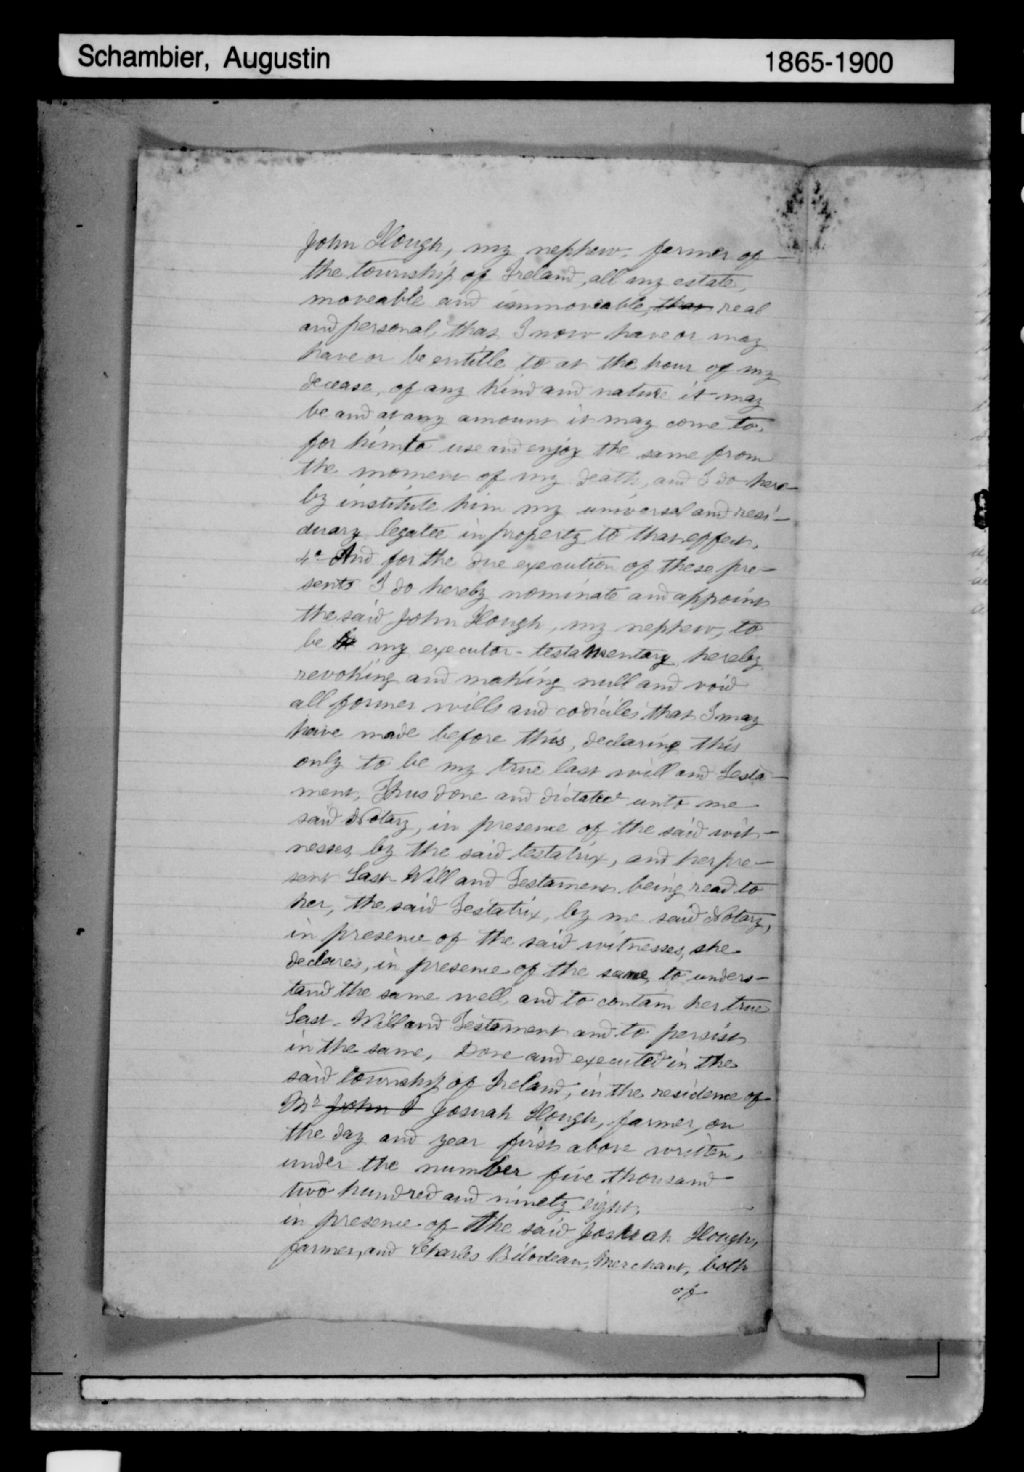 Schambier, Augustin 1865-1900
John Hough, my nephew, farmer of
the township of Ireland, all my estate,
moveable and immoveable, that real
and personal that I now have or may
have or be entitle to at the hour of my
decease, of any kind and nature it may
be and at any amount it may come to,
for him to use and enjoy the same from
the moment of my death, and I do here-
by institute him my universal and resi-
duary legatee in property to that effect.
4° And for the due execution of these pre-
sents I do hereby nominate and appoint
the said John Hough, my nephew, to
be my executor-testamentary, hereby
revoking and making null and void
all former wills and codiciles that I may
have made before this, declaring this
only to be my true last will and Testa-
ment. Thus done and dictated unto me
said Notary, in presence of the said wit-
nesses, by the said testatrix, and her pre-
sent Last Will and Testament being read to
her, the said Testatrix, by me said Notary,
in presence of the said witnesses, she
declares, in presence of the same, to unders-
tand the same well, and to contain her true
Last Will and Testament and to persist
in the same. Done and executed in the
said township of Ireland, in the residence of
Mr John J Josuah Hough, farmer, on
the day and year first above written,
under the number five thousand
two hundred and ninety eight,
in presence of the said Josuah Hough,
farmer, and Charles Bilodeau, Merchant, both
of